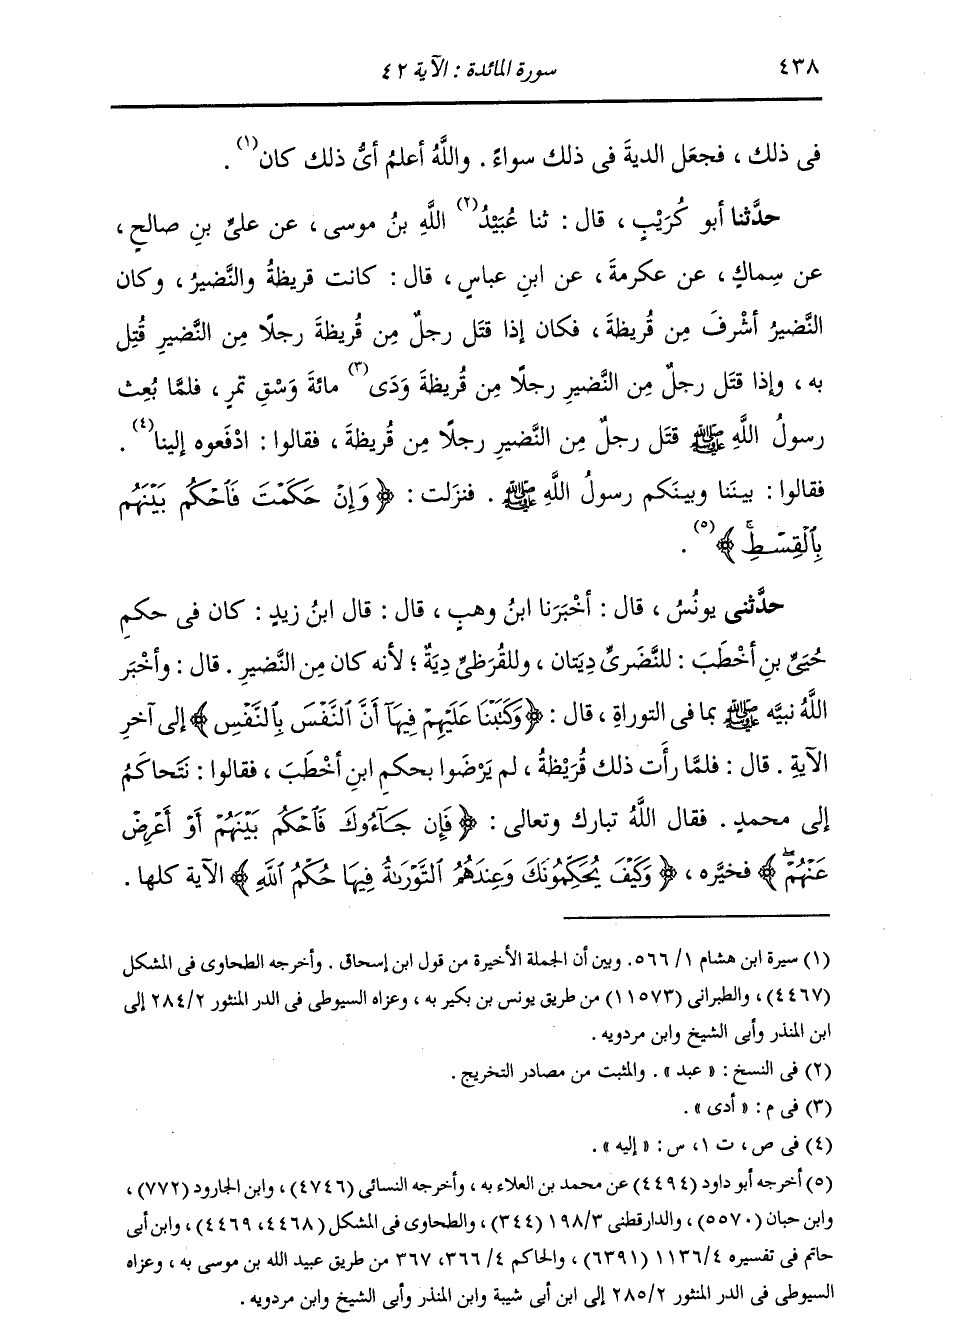 ٤٣٨
سورة المائدة : الآية ٤٢
فى ذلك ، فجعَل الديةَ فى ذلك سواءً . واللَّهُ أعلمُ أىُّ ذلك كان(١) .
حدَّثنا أبو كُرَيْبٍ ، قال : ثنا عُبَيْدُ(٢) اللَّهِ بنُ موسى ، عن علىِّ بنِ صالحٍ ،
عن سِماكٍ ، عن عكرمةَ ، عن ابنِ عباسٍ ، قال : كانت قريظةُ والنَّضيرُ ، وكان
النَّضيرُ أشْرفَ مِن قُريظةَ ، فكان إذا قتَل رجلٌ مِن قُريظةَ رجلًا مِن النَّضيرِ قُتِل
به ، وإذا قتَل رجلٌ مِن النَّضيرِ رجلًا مِن قُريظةَ وَدَى(٣) مائةَ وَسْقِ تمرٍ ، فلمَّا بُعِث
رسولُ اللَّهِ ﷺ قتَل رجلٌ مِن النَّضيرِ رجلًا مِن قُريظةَ ، فقالوا : ادْفَعوه إلينا(٤) .
فقالوا : بينَنا وبينَكم رسولُ اللَّهِ ﷺ . فنزَلت : ﴿ وَإِنْ حَكَمْتَ فَٱحْكُم بَيْنَهُم
بِٱلْقِسْطِۚ ﴾(٥) .
حدَّثنى يونُسُ ، قال : أخْبَرَنا ابنُ وهبٍ ، قال : قال ابنُ زيدٍ : كان فى حكمِ
حُيَىِّ بنِ أخْطَبَ : للنَّضَرىِّ دِيَتان ، وللقُرَظىِّ دِيَةٌ ؛ لأنه كان مِن النَّضيرِ . قال : وأخْبَر
اللَّهُ نبيَّه ﷺ بما فى التوراةِ ، قال : ﴿ وَكَتَبْنَا عَلَيْهِمْ فِيهَآ أَنَّ ٱلنَّفْسَ بِٱلنَّفْسِ ﴾ إلى آخرِ
الآيةِ . قال : فلمَّا رأَت ذلك قُرَيْظةُ ، لم يَرْضَوا بحكمِ ابنِ أخْطَبَ ، فقالوا : نَتَحاكَمُ
إلى محمدٍ . فقال اللَّهُ تبارك وتعالى : ﴿ فَإِن جَآءُوكَ فَٱحْكُم بَيْنَهُمْ أَوْ أَعْرِضْ
عَنْهُمْۖ ﴾ فخيَّره ، ﴿ وَكَيْفَ يُحَكِّمُونَكَ وَعِندَهُمُ ٱلتَّوْرَىٰةُ فِيهَا حُكْمُ ٱللَّهِ ﴾ الآية كلها .
(١) سيرة ابن هشام ١/ ٥٦٦. وبين أن الجملة الأخيرة من قول ابن إسحاق . وأخرجه الطحاوى فى المشكل
(٤٤٦٧) ، والطبرانى (١١٥٧٣) من طريق يونس بن بكير به ، وعزاه السيوطى فى الدر المنثور ٢٨٤/٢ إلى
ابن المنذر وأبى الشيخ وابن مردويه .
(٢) فى النسخ : « عبد » . والمثبت من مصادر التخريج .
(٣) فى م : « أدى » .
(٤) فى ص ، ت ١، س : « إليه » .
(٥) أخرجه أبو داود (٤٤٩٤) عن محمد بن العلاء به ، وأخرجه النسائى (٤٧٤٦) ، وابن الجارود (٧٧٢) ،
وابن حبان (٥٠٥٧) ، والدارقطنى ١٩٨/٣ (٣٤٤) ، والطحاوى فى المشكل (٤٤٦٨، ٤٤٦٩) ، وابن أبى
حاتم فى تفسيره ١١٣٦/٤ (٦٣٩١) ، والحاكم ٤/ ٣٦٦، ٣٦٧ من طريق عبيد الله بن موسى به ، وعزاه
السيوطى فى الدر المنثور ٢٨٥/٢ إلى ابن أبى شيبة وابن المنذر وأبى الشيخ وابن مردويه .